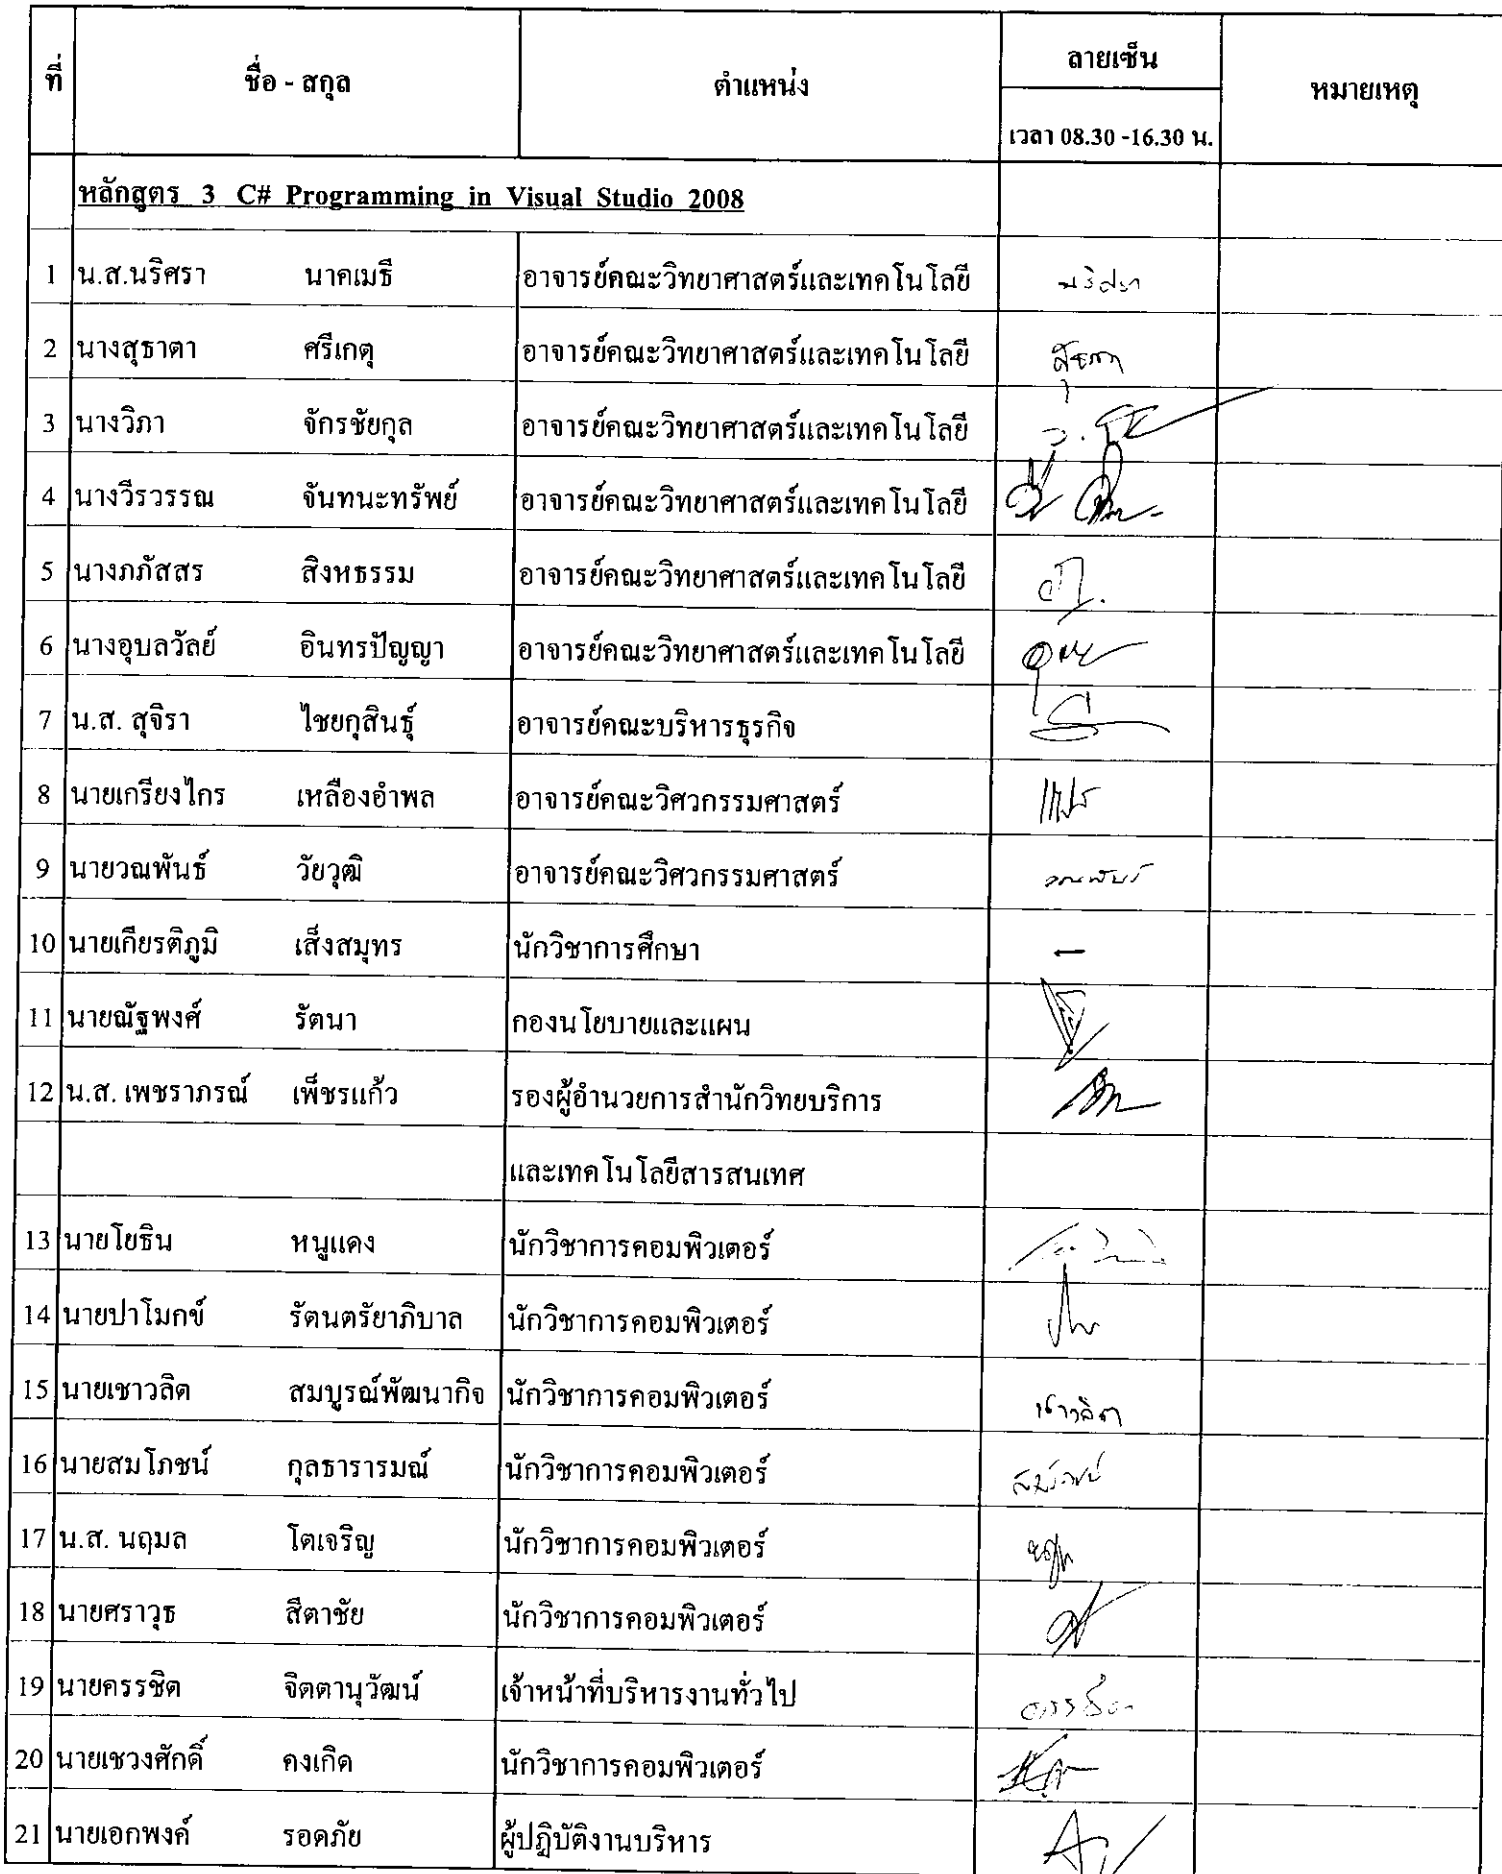 ที่ ชื่อ - สกุล ตำแหน่ง ลายเซ็น หมายเหตุ
เวลา 08.30 -16.30 น.
หลักสูตร 3 C# Programming in Visual Studio 2008
1 น.ส.นริศรา นาคเมธี อาจารย์คณะวิทยาศาสตร์และเทคโนโลยี นริศรา
2 นางสุธาตา ศรีเกตุ อาจารย์คณะวิทยาศาสตร์และเทคโนโลยี สุธาตา
3 นางวิภา จักรชัยกุล อาจารย์คณะวิทยาศาสตร์และเทคโนโลยี
4 นางวีรวรรณ จันทนะทรัพย์ อาจารย์คณะวิทยาศาสตร์และเทคโนโลยี
5 นางภภัสสร สิงหธรรม อาจารย์คณะวิทยาศาสตร์และเทคโนโลยี
6 นางอุบลวัลย์ อินทรปัญญา อาจารย์คณะวิทยาศาสตร์และเทคโนโลยี
7 น.ส. สุจิรา ไชยกุสินธุ์ อาจารย์คณะบริหารธุรกิจ
8 นายเกรียงไกร เหลืองอำพล อาจารย์คณะวิศวกรรมศาสตร์
9 นายวณพันธ์ วัยวุฒิ อาจารย์คณะวิศวกรรมศาสตร์ วณพันธ์
10 นายเกียรติภูมิ เส็งสมุทร นักวิชาการศึกษา -
11 นายณัฐพงศ์ รัตนา กองนโยบายและแผน
12 น.ส. เพชราภรณ์ เพ็ชรแก้ว รองผู้อำนวยการสำนักวิทยบริการ
และเทคโนโลยีสารสนเทศ
13 นายโยธิน หนูแดง นักวิชาการคอมพิวเตอร์
14 นายปาโมกข์ รัตนตรัยาภิบาล นักวิชาการคอมพิวเตอร์
15 นายเชาวลิต สมบูรณ์พัฒนากิจ นักวิชาการคอมพิวเตอร์ เชาวลิต
16 นายสมโภชน์ กุลธารารมณ์ นักวิชาการคอมพิวเตอร์ สมโภชน์
17 น.ส. นฤมล โตเจริญ นักวิชาการคอมพิวเตอร์
18 นายศราวุธ สีตาชัย นักวิชาการคอมพิวเตอร์
19 นายครรชิต จิตตานุวัฒน์ เจ้าหน้าที่บริหารงานทั่วไป ครรชิต
20 นายเชวงศักดิ์ คงเกิด นักวิชาการคอมพิวเตอร์
21 นายเอกพงค์ รอดภัย ผู้ปฏิบัติงานบริหาร